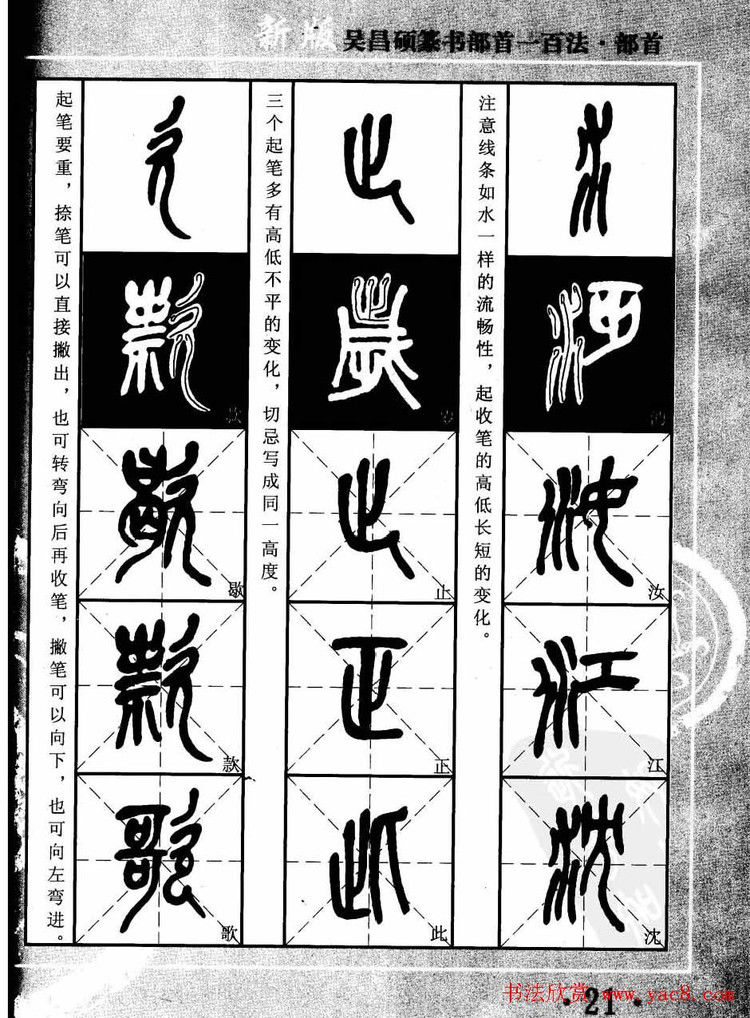 新版 吴昌硕篆书部首一百法·部首
注意线条如水一样的流畅性，起收笔的高低长短的变化。
汝
江
沈
三个起笔多有高低不平的变化，切忌写成同一高度。
止
正
此
起笔要重，捺笔可以直接撇出，也可转弯向后再收笔，撇笔可以向下，也可向左弯进。
歇
款
歌
书法欣赏 www.yac8.com
·21·